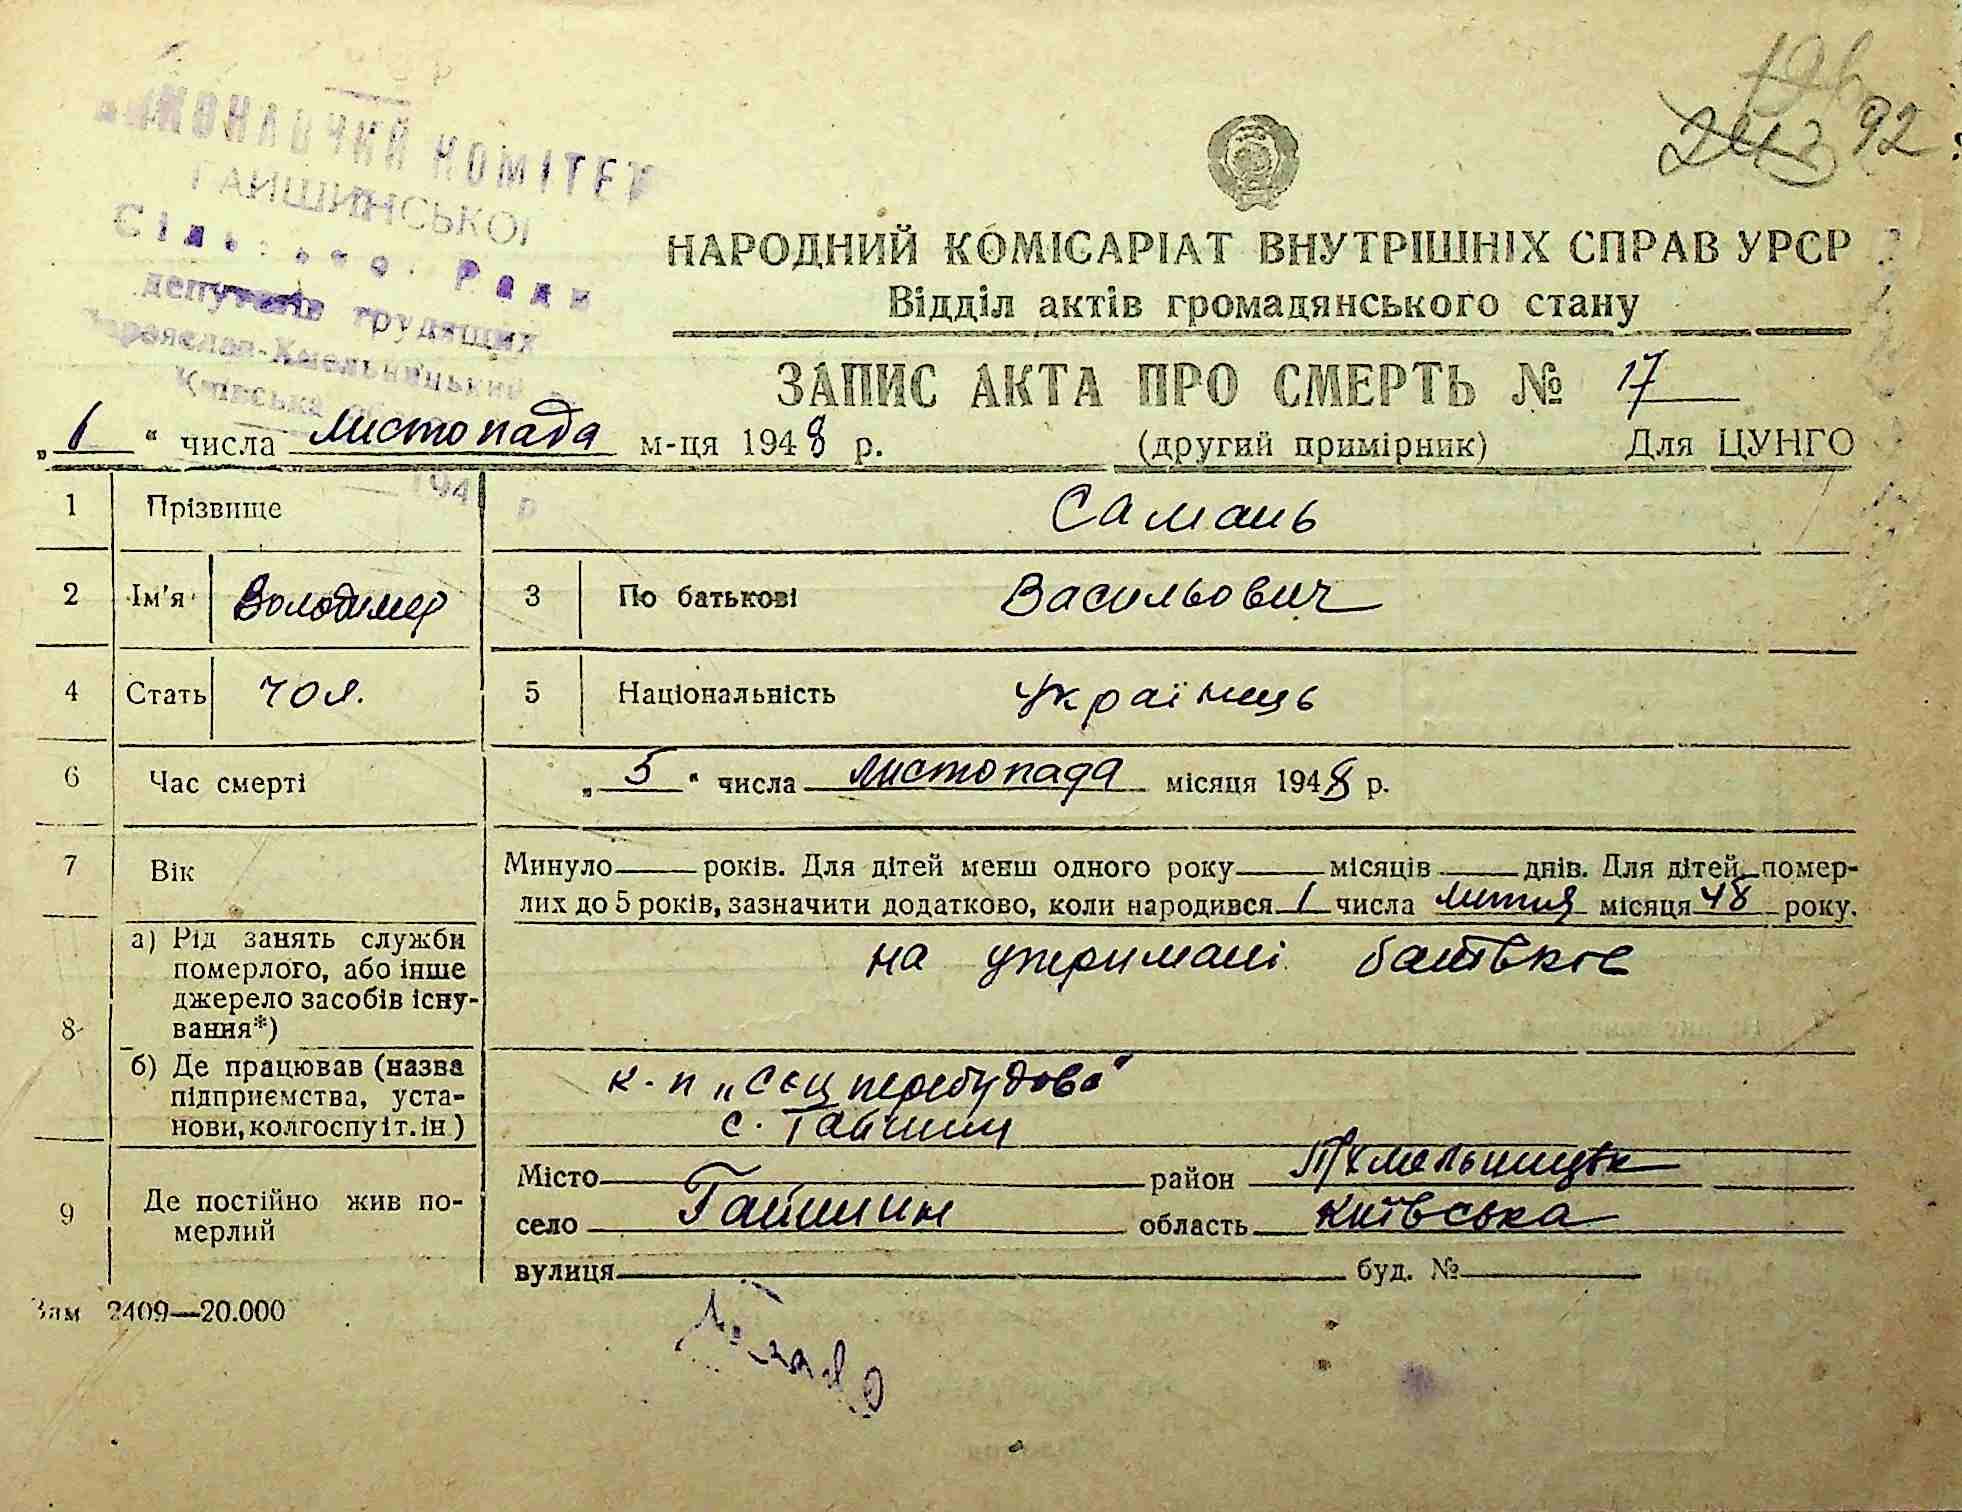 ВИКОНАВЧИЙ КОМІТЕТ
ГАЙШИНСЬКОЇ
Ради
депутатів трудящих
Переяслав-Хмельницький
Київська
194 р
243 92
НАРОДНИЙ КОМІСАРІАТ ВНУТРІШНІХ СПРАВ УРСР
Відділ актів громадянського стану
ЗАПИС АКТА ПРО СМЕРТЬ № 17
„ 6 “ числа листопада м-ця 1948 р. (другий примірник) Для ЦУНГО
1 Прізвище Самань
2 Ім'я Володимер 3 По батькові Васильович
4 Стать чол. 5 Національність Українець
6 Час смерті „ 5 “ числа листопада місяця 1948 р.
7 Вік Минуло роківː Для дітей менш одного року місяців днів. Для дітей, помер-
лих до 5 років, зазначити додатково, коли народився 1 числа липня місяця 48 року.
8 а) Рід занять служби
померлого, або інше
джерело засобів існу-
вання*)
на утримані батьків
б) Де працював (назва
підприємства, уста-
нови, колгоспу і т. ін)
к-п „Соц перебудова“
с. Гайшин
9 Де постійно жив по-
мерлий
Місто район П Хмельницьк
село Гайшин область Київська
вулиця буд. №
Зам 2409—20.000